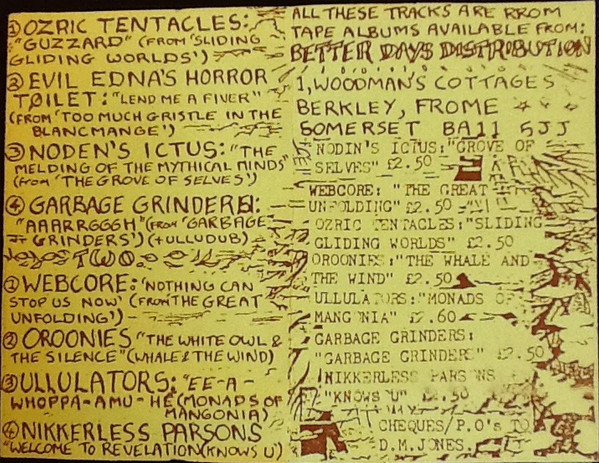 ① OZRIC TENTACLES:
"GUZZARD" (FROM 'SLIDING
GLIDING WORLDS')
② EVIL EDNA'S HORROR
TOILET: "LEND ME A FIVER"
(FROM 'TOO MUCH GRISTLE IN THE
BLANCMANGE')
③ NODEN'S ICTUS: "THE
MELDING OF THE MYTHICAL MINDS"
(from 'THE GROVE OF SELVES')
④ GARBAGE GRINDERS:
"AAARRGGGH" (FROM 'GARBAGE
GRINDERS') (+ULLUDUB)
TWO
① WEBCORE: 'NOTHING CAN
STOP US NOW' (FROM THE GREAT
UNFOLDING')
② OROONIES "THE WHITE OWL &
THE SILENCE" (WHALE & THE WIND)
③ ULLULATORS: "EE-A-
WHOPPA-AMU-HE (MONADS OF
MANGONIA)
④ NIKKERLESS PARSONS
"WELCOME TO REVELATION (KNOWS U)
ALL THESE TRACKS ARE RROM
TAPE ALBUMS AVAILABLE FROM:
BETTER DAYS DISTRIBUTION
1, WOODMAN'S COTTAGES
BERKLEY, FROME
SOMERSET BA11 5JJ
NODIN'S ICTUS: "GROVE OF
SELVES" £2.50
WEBCORE: "THE GREAT
UNFOLDING" £2.50
OZRIC TENTACLES: "SLIDING
GLIDING WORLDS" £2.50
OROONIES: "THE WHALE AND
THE WIND" £2.50
ULLULATORS: "MONADS OF
MANGONIA" £2.60
GARBAGE GRINDERS:
"GARBAGE GRINDERS" £2.50
NIKKERLESS PARSONS
"KNOWS U" £2.50
CHEQUES/P.O's TO
D.M.JONES.